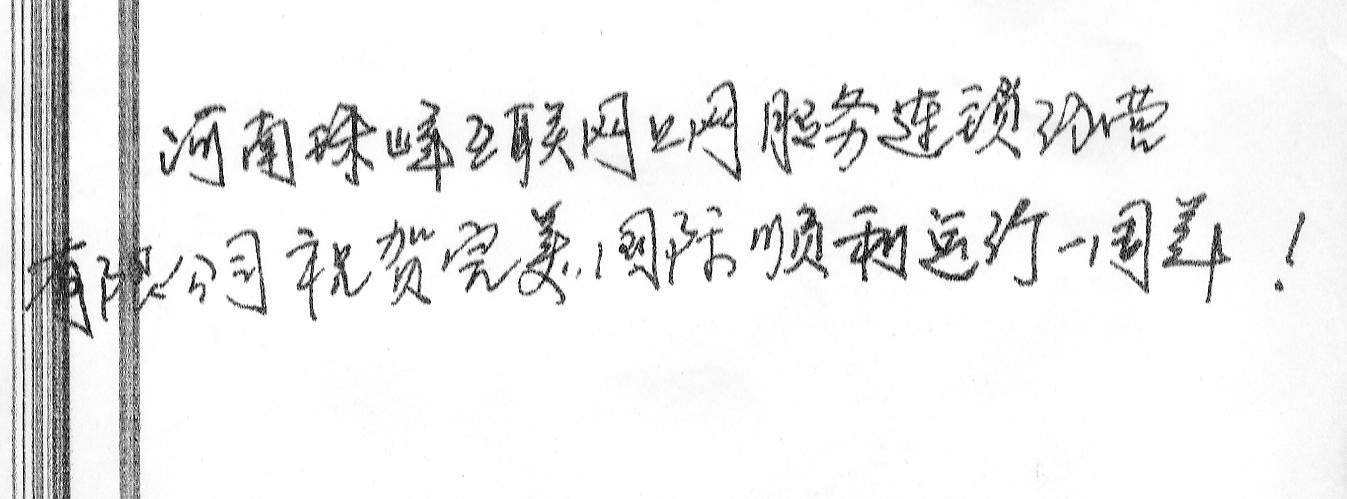 河南珠峰互联网上网服务连锁经营
有限公司祝贺完美国际顺利运行一周年！